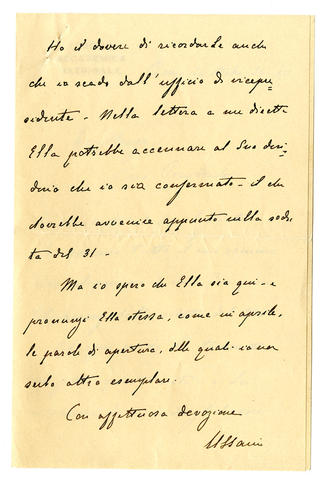 Ho il dovere di ricordarLe anche
che io scado dall'ufficio di vicepre=
sidente - Nella lettera a me diretta
Ella potrebbe accennare al Suo desi=
derio che io sia confermato - il che
dovrebbe avvenire appunto nella sedu=
ta del 31 -
Ma io spero che Ella sia qui - e
pronunzi Ella stessa, come in aprile,
le parole di apertura, delle quali io non
serbo altro esemplare.
Con affettuosa devozione
Ussani